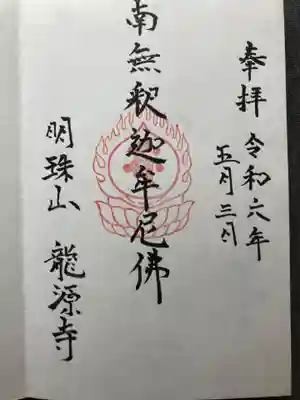 奉拝
令和六年
五月三日
南無釈迦牟尼佛
明珠山 龍源寺